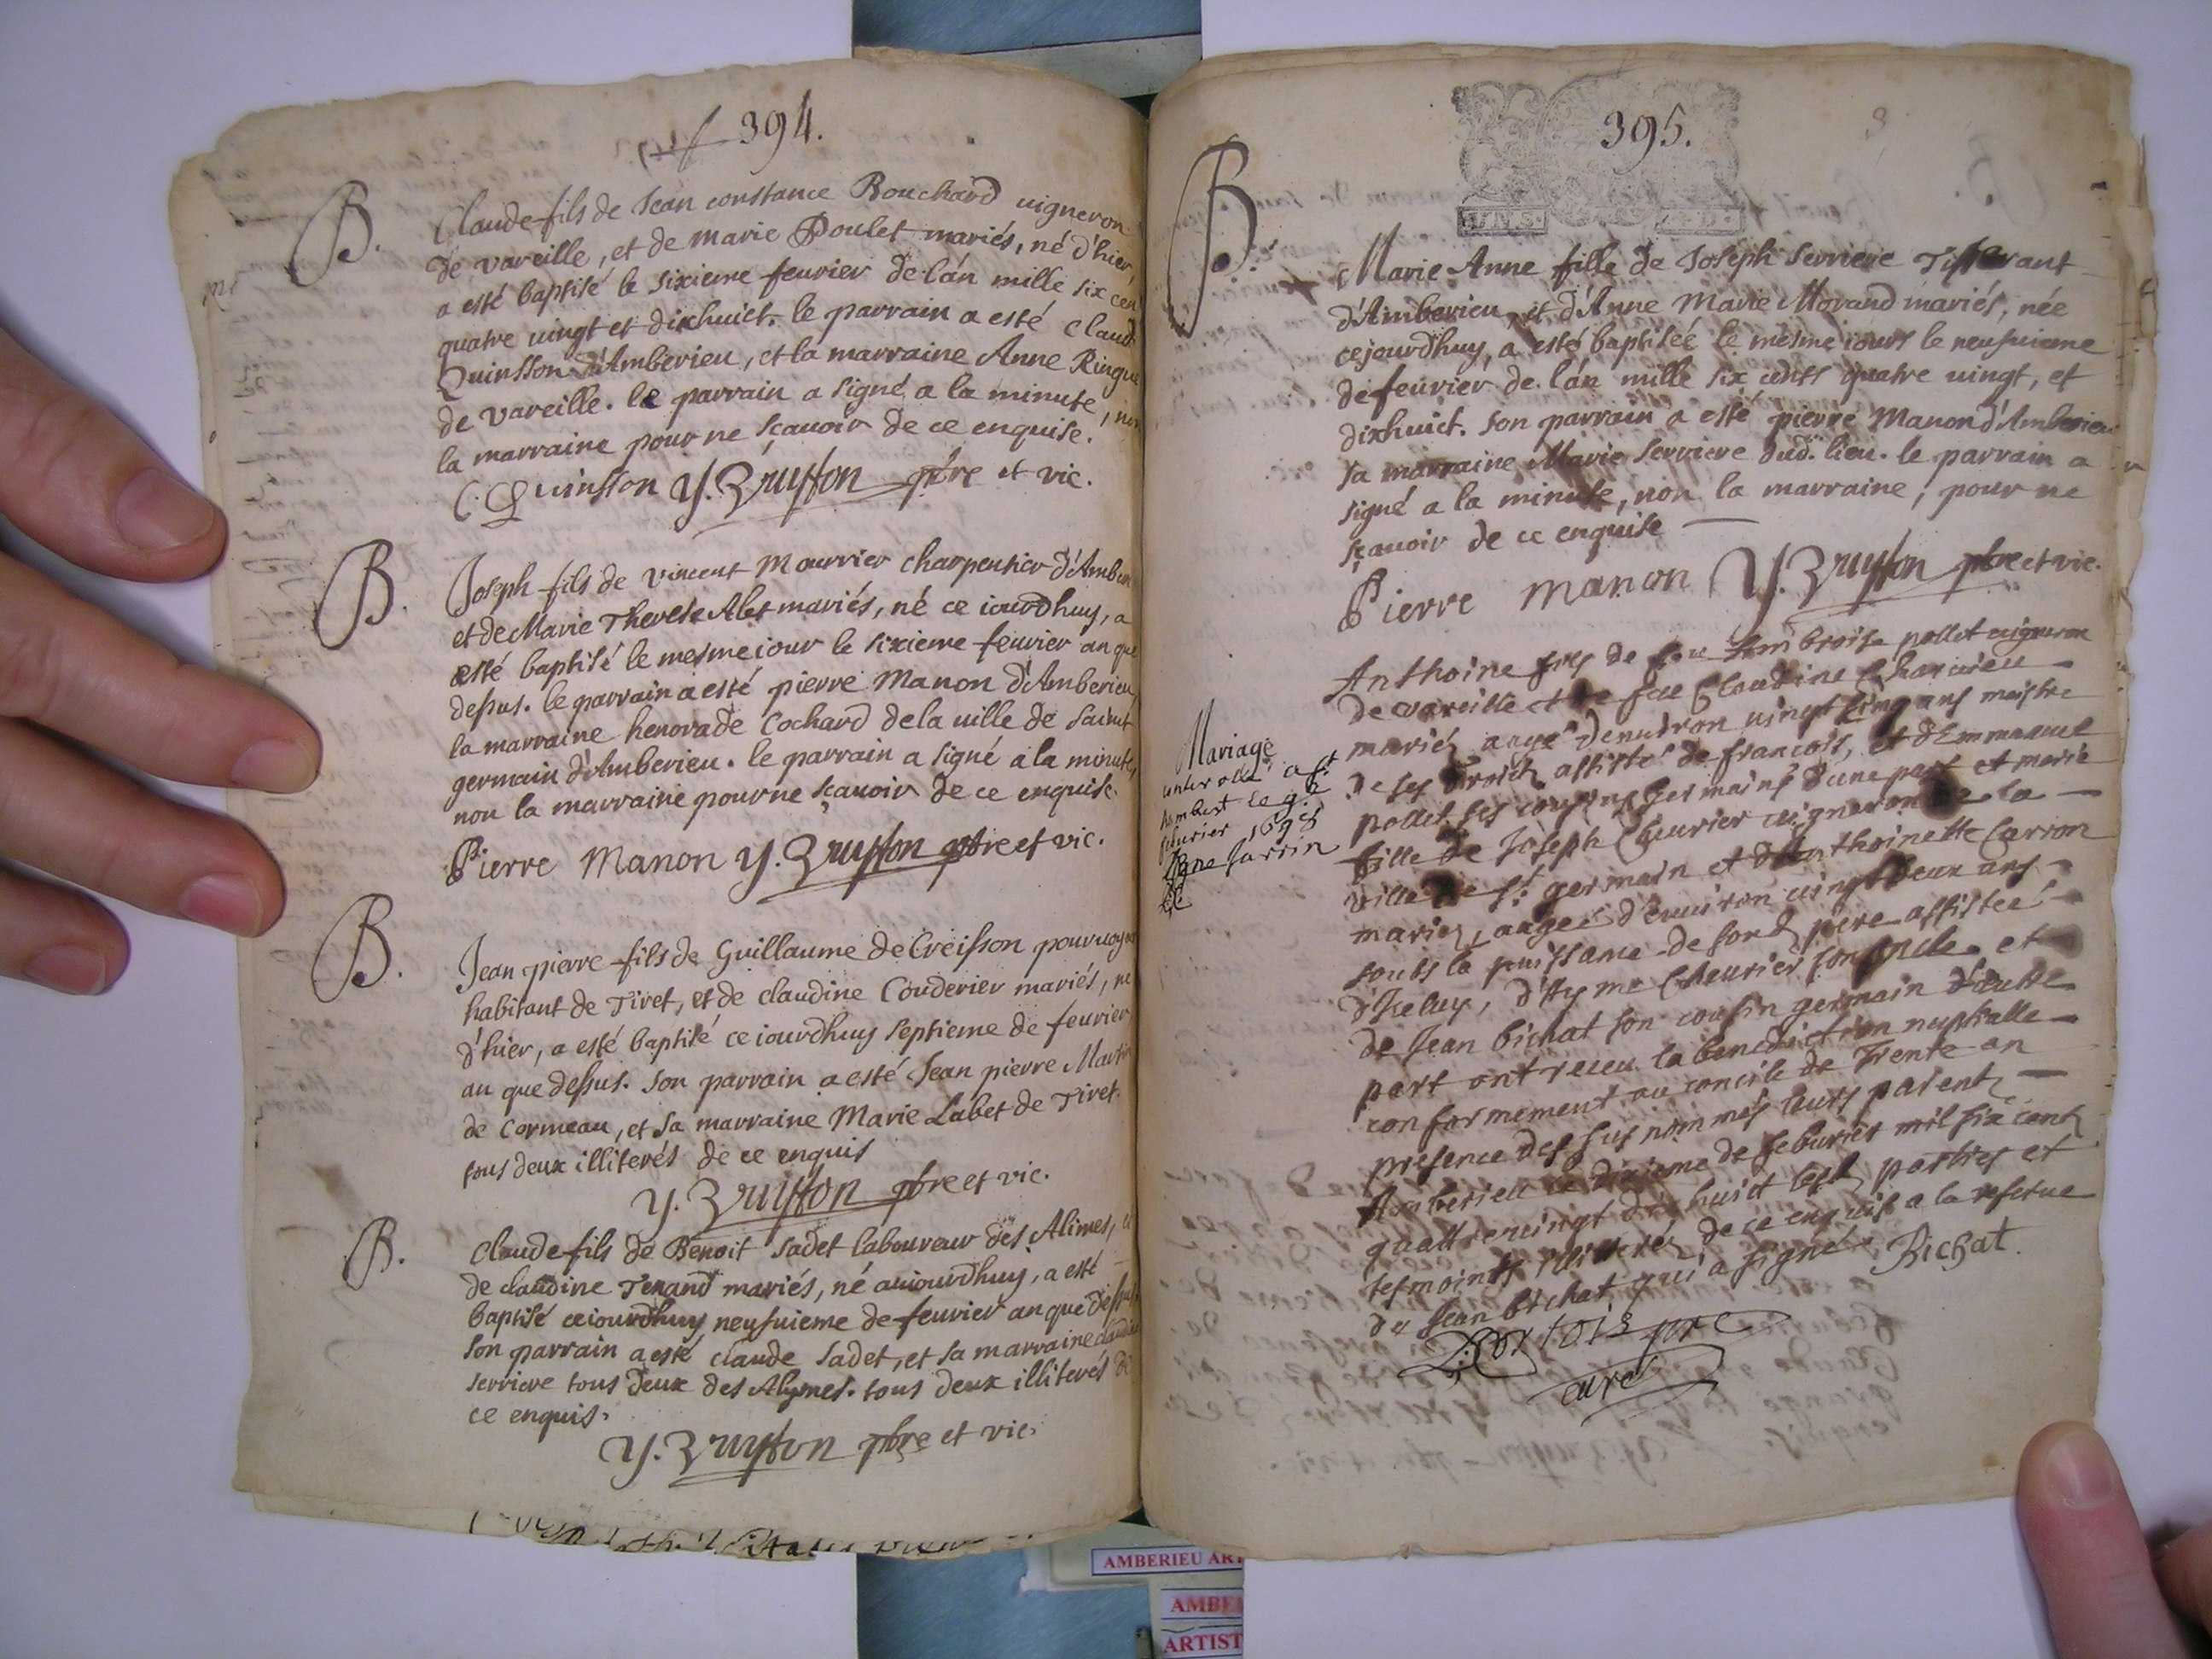 394.
B.
Claude fils de Jean constance Bouchard uigneron
de vareille, et de marie Poulet mariés, né d'hier,
a esté baptisé le sixieme feurier de l'án mille six cen
quatre uingt et dixhuict. le parrain a esté Claud
Quinsson d'Amberieu, et la marraine Anne Ringue
de vareille. le parrain a signé a la minute, non
la marraine pour ne scauoir de ce enquise.
C. Quinsson y. Bruysson pbre et vic.
B.
Joseph fils de vincent Mourrier charpentier d'Amberi
et de Marie Therese Alet mariés, né ce iourdhuy, a
esté baptisé le mesme iour le sixieme feurier an que
dessus. le parrain a esté pierre Manon d'Amberieu
la marraine henorade Cochard de la uille de saint
germain d'Amberieu. le parrain a signé a la minute,
non la marraine pour ne scauoir de ce enquise.
Pierre Manon y. Bruysson pbre et vic.
B.
Jean pierre fils de Guillaume de Creisson pouruoyeu
habitant de Tiret, et de claudine Couderier mariés, né
d'hier, a esté baptisé ce iourdhuy septieme de feurier
an que dessus. son parrain a esté Jean pierre Martin
de Cormeau, et sa marraine Marie Labet de Tiret.
tous deux illiterés de ce enquis
y. Bruysson pbre et vic.
B.
Claude fils de Benoit Sadet laboureur des Alimes, et
de claudine Tenand mariés, né auiourdhuy, a esté
baptisé ce iourdhuy neusuieme de feurier an que dessus
son parrain a esté claude Sadet, et sa marraine claudine
serriere tous deux des Alymes. tous deux illiterés de
ce enquis.
y. Bruysson pbre et vic.
395.
B.
Marie Anne fille de Joseph Serriere Tisserant
d'Amberieu, et d'Anne Marie Morand mariés, née
cejourdhuy, a esté baptisée le mesme iours le neusuieme
de feurier de l'án mille six cents quatre uingt, et
dixhuict. son parrain a esté pierre Manon d'Amberieu
sa marraine Marie Serriere dud. lieu. le parrain a
signé a la minute, non la marraine, pour ne
scauoir de ce enquise
Pierre Manon y. Bruysson pbre et vic.
Mariage
feburier 1698
Anthoine fils de feu Ambroise pollet uigneron
de vareille et de feue Claudine
mariez aagé denuiron uingt cinq ans maistre
de ses droitz assisté de francois, et d'Emmanuel
pollet ses cousins germains d'une part et marie
fille de Joseph Cheurier uigneron de la
ville de st germain et d'Anthoinette Carron
mariez, aagée d'enuiron uingt deux ans
soubs la puissance de sond pere assistée
d'Iceluy, d'Ayme Cheurier son oncle et
de Jean bichat son cousin germain d'autre
part ont receu la benediction nuptialle
conformement au concile de Trente en
presence des sus nommés leurs parentz
Amberieu le dixieme de feburier mil six centz
quattreuingt dix huict lesd parties et
tesmoints illiterez de ce enquis a la reserue
du Jean bichat qui a signé. Bichat.
pre
curé
AMBERIEU ART
AMBE
ARTIST